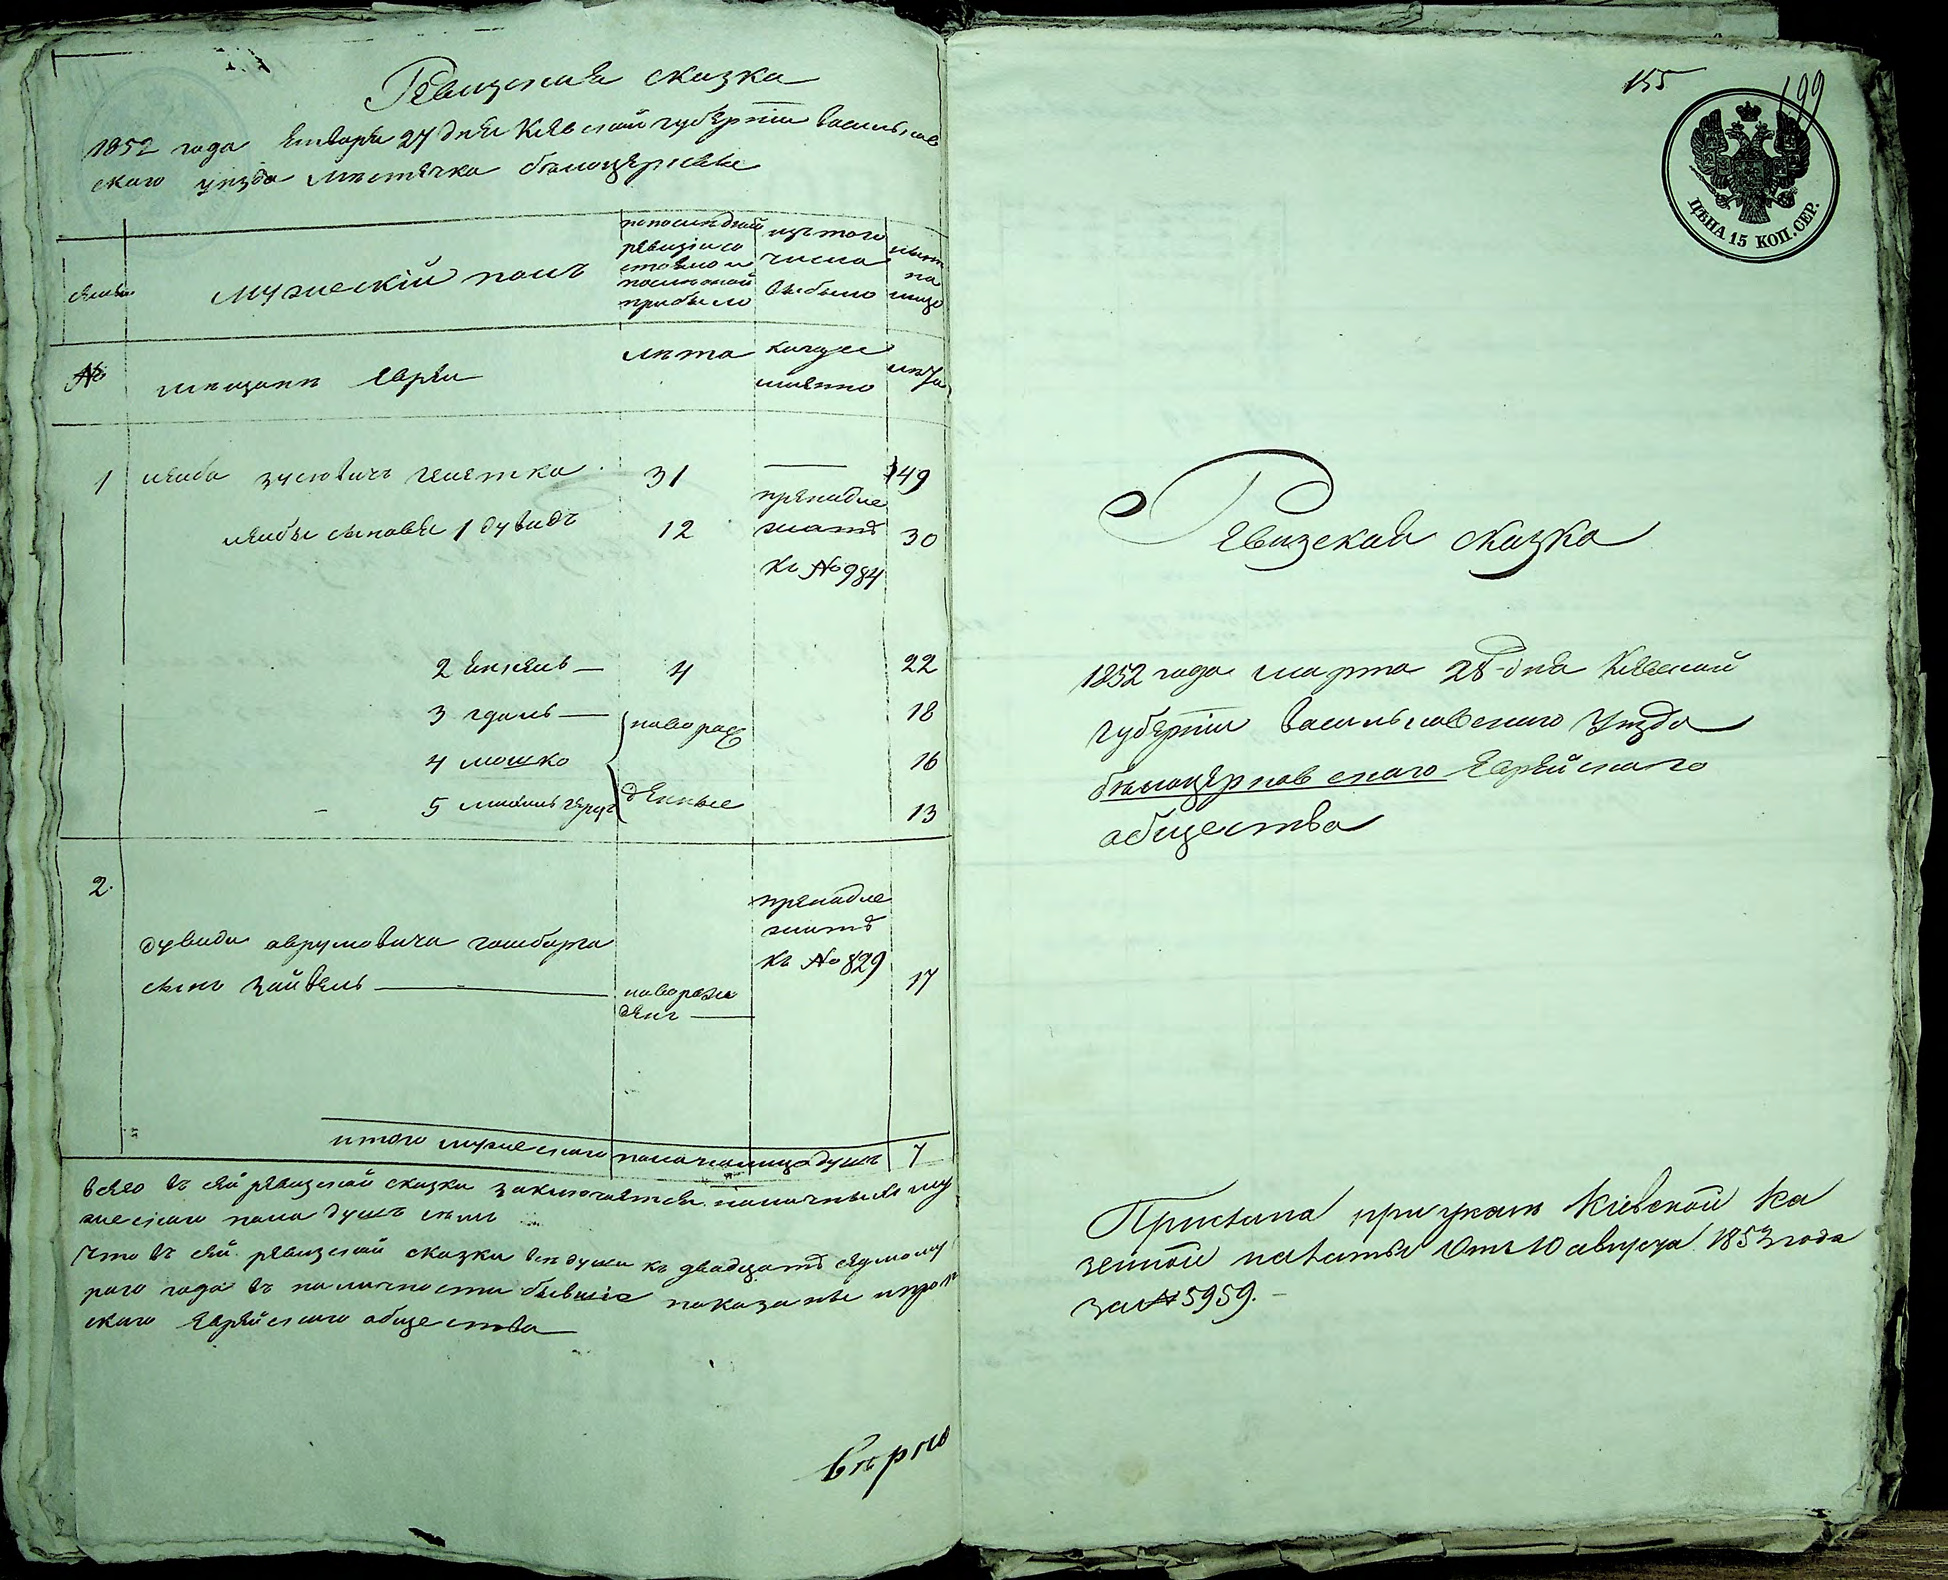 Ревизская сказка
1852 года Января 27 дня Кіевской губерніи васильков
ского уезда местечка белоцерквы
семьи
мужескій полъ
по последней
ревизіи со
стояло и
после оной
прибыло
изъ того
числа
выбыло
ныне
на
лицо
№
мещане Евреи
лета
когда
именно
лета
1 лейба зусовичъ
31
49
лейбы сыновья 1 дувидъ
12
пренадле
жатъ
къ № 984
30
2 Янкель
4
22
3
18
4 мошко
новорож
16
5
денные
13
2.
дувида аврумовича гомберга
сынъ Зайвель
новорож
денъ
пренадле
жатъ
къ № 829
17
итого мужеского пола налицо душъ 7
всего въ сей ревизской сказки заключается наличныхъ му
жеского пола душъ семь
что въ сей ревизской сказки все души къ двадцать седмому
раго года въ наличности бывшіе показаны
ского Еврейского общества
верно
155
199
ЦѢНА 15 КОП. СЕР.
Ревизская сказка
1852 года марта 28 дня Кіевской
губерніи васильковского уезда
белоцерковского Еврейского
общества
Прислана при указе Кіевской Ка
зенной палаты отъ 10 августа 1853 года
за № 5959.